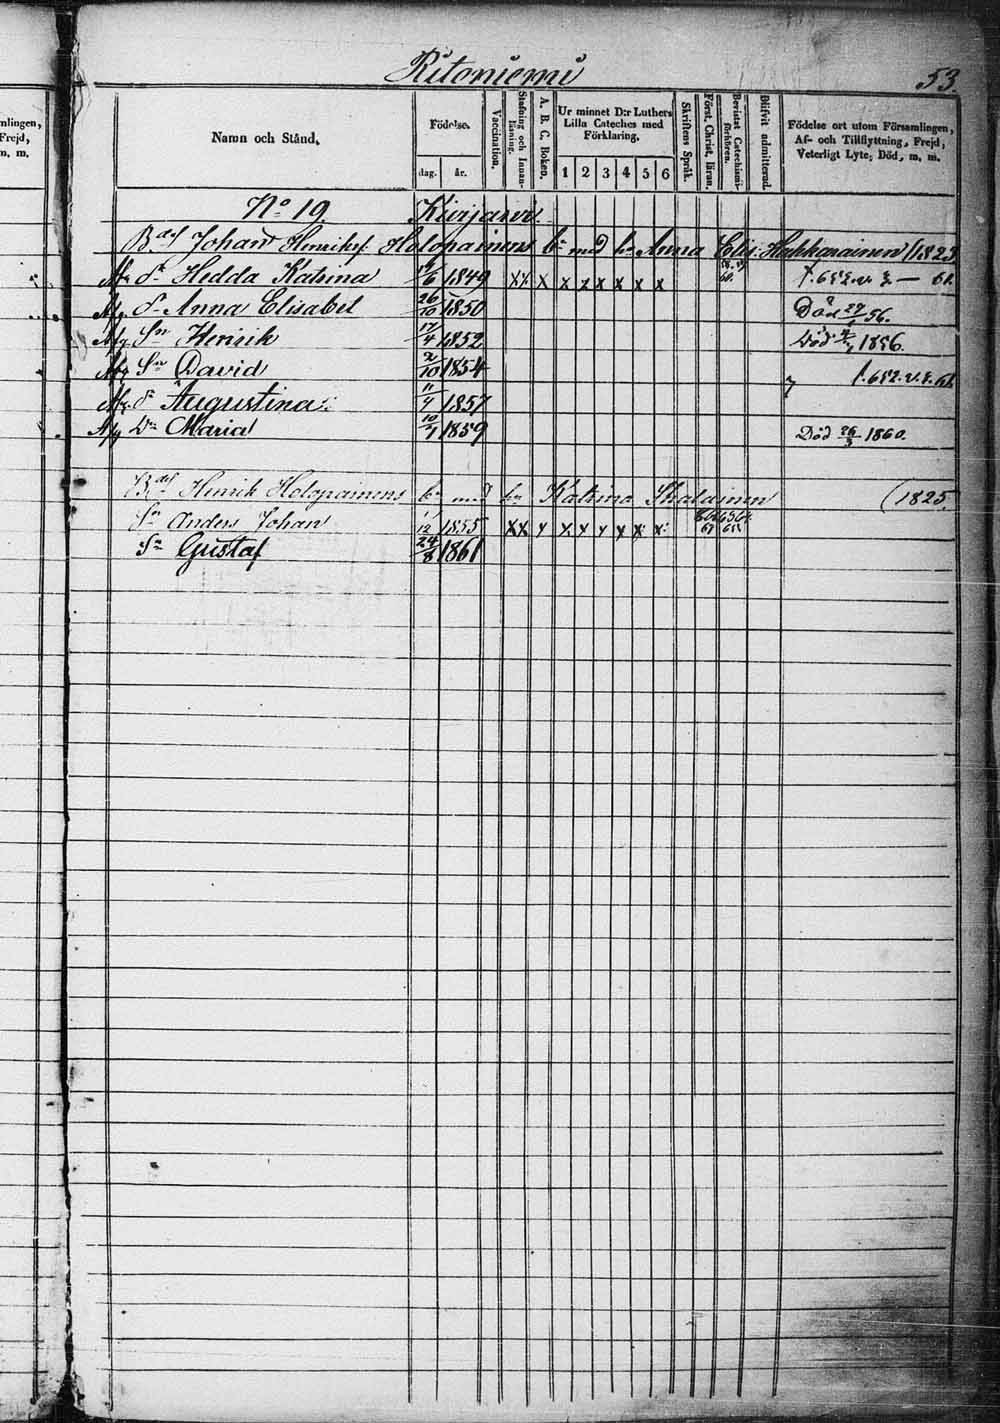 mlingen,
Frejd,
n, m.
Ritoniemi
53.
Namn och Stånd.
Födelse.
dag. år.
Vaccination.
Stafning och Innanläsning.
A. B. C. Boken.
Ur minnet D:r Luthers
Lilla Cateches med
Förklaring.
1 2 3 4 5 6
Skriftens Språk.
Först. Christ. läran.
Bevistat Catechismiförhören.
Blifvit admitterad.
Födelse ort utom Församlingen,
Af- och Tillflyttning, Frejd,
Veterligt Lyte, Död, m, m.
No 19. Kurjanvi
Johan Henriksf. Holopainens bn med hn Anna Elis: Hakkarainen (1823
dr Hedda Katrina 6 1849 x x x x x x x x x f. 652. v. — 61.
dr Anna Elisabet 26/10 1850 Död 27 56.
Sn Henrik 17/4 1852 Död 1856.
Sn David 2/10 1854 f. 652. v. 61.
dr Augustina 11/4 1857
Dr Maria 10 1859 Död 26/3 1860.
Henrik Holopainens bn med hn Katrina Ihalainen (1825.
Sn Anders Johan 12 1855 x x x x x x x x x 67
Sn Gustaf 24/8 1861